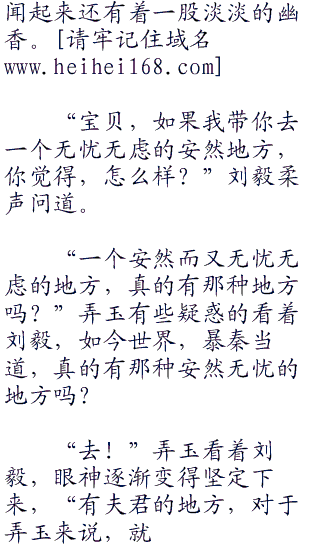 闻起来还有着一股淡淡的幽
香。[请牢记住域名
www.heihei168.com]
“宝贝，如果我带你去
一个无忧无虑的安然地方，
你觉得，怎么样？”刘毅柔
声问道。
“一个安然而又无忧无
虑的地方，真的有那种地方
吗？”弄玉有些疑惑的看着
刘毅，如今世界，暴秦当
道，真的有那种安然无忧的
地方吗？
“去！”弄玉看着刘
毅，眼神逐渐变得坚定下
来，“有夫君的地方，对于
弄玉来说，就